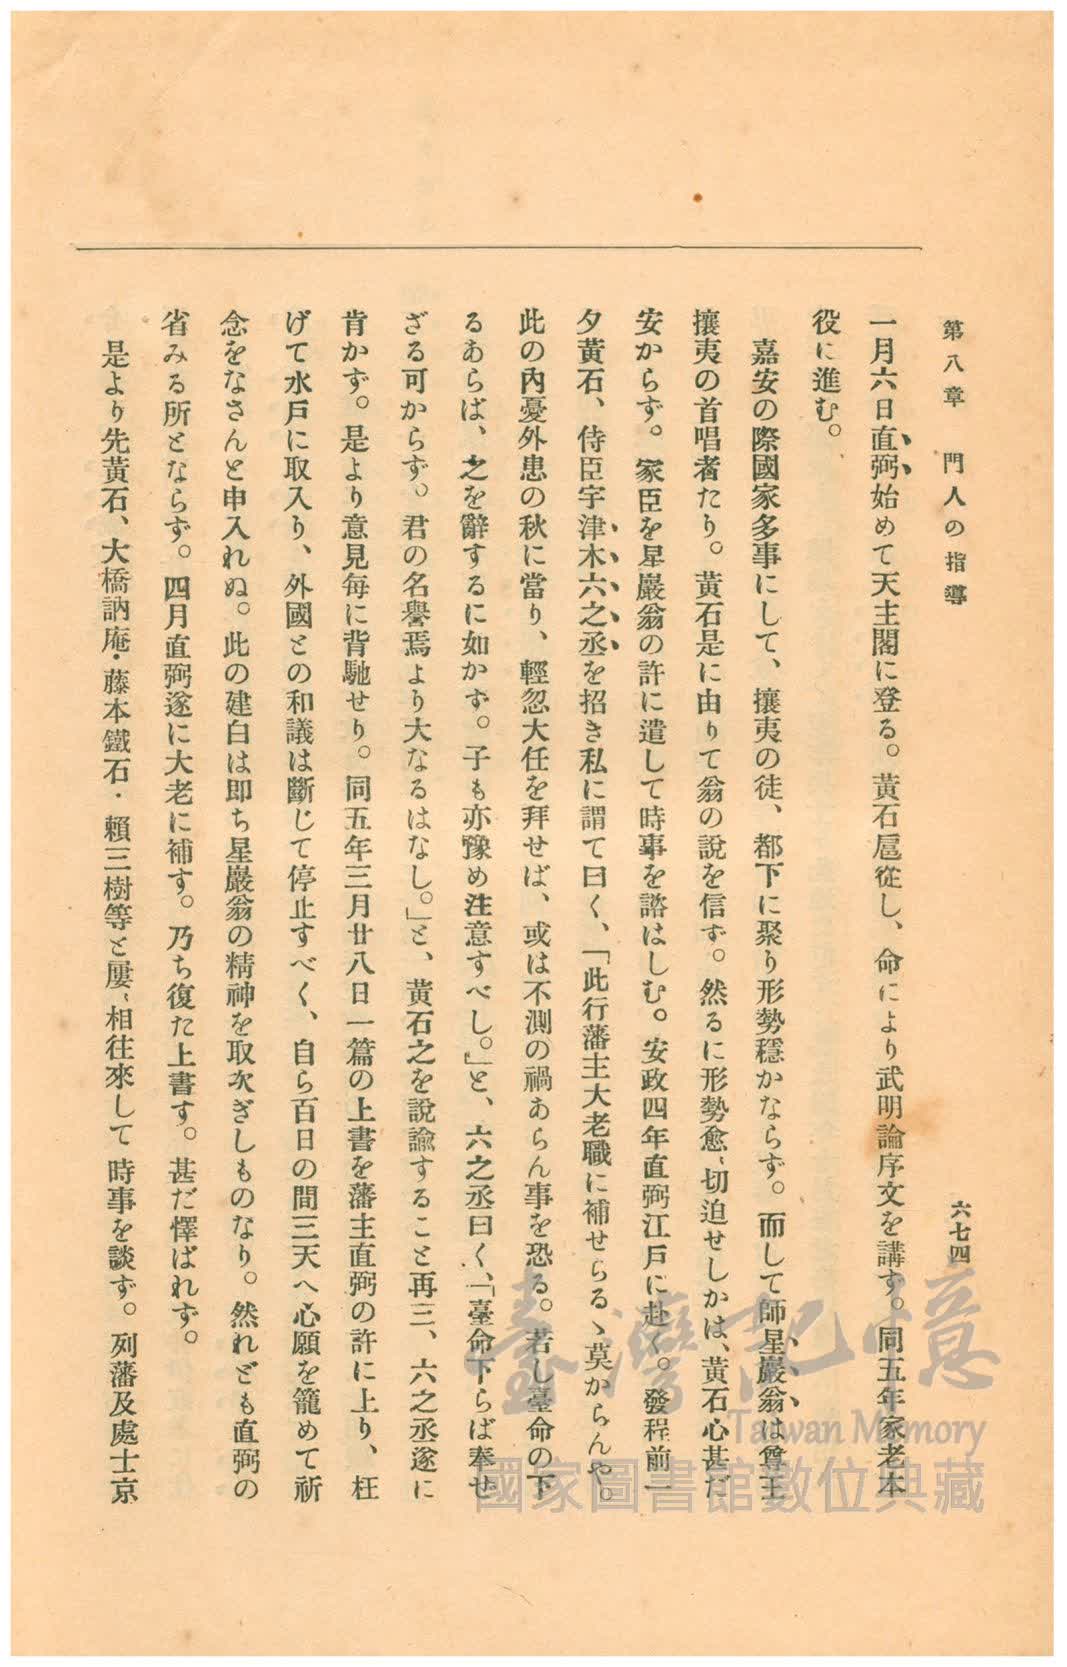 第八章　門人の指導
六七四
一月六日直弼始めて天主閣に登る。黃石扈從し、命により武明論序文を講す。同五年家老本
役に進む。
嘉安の際國家多事にして、攘夷の徒、都下に聚り形勢穩かならず。而して師星巖翁は尊王
攘夷の首唱者たり。黃石是に由りて翁の說を信ず。然るに形勢愈〻切迫せしかは、黃石心甚だ
安からず。家臣を星巖翁の許に遣して時事を諮はしむ。安政四年直弼江戶に赴く。發程前一
夕黃石、侍臣宇津木六之丞を招き私に謂て曰く、「此行藩主大老職に補せらるゝ莫からんや。
此の內憂外患の秋に當り、輕忽大任を拜せば、或は不測の禍あらん事を恐る。若し臺命の下
るあらば、之を辭するに如かず。子も亦豫め注意すべし。」と、六之丞曰く、「臺命下らば奉せ
ざる可からず。君の名譽焉より大なるはなし。」と、黃石之を說諭すること再三、六之丞遂に
肯かず。是より意見每に背馳せり。同五年三月廿八日一篇の上書を藩主直弼の許に上り、枉
げて水戶に取入り、外國との和議は斷じて停止すべく、自ら百日の間三天へ心願を籠めて祈
念をなさんと申入れぬ。此の建白は即ち星巖翁の精神を取次ぎしものなり。然れども直弼の
省みる所とならず。四月直弼遂に大老に補す。乃ち復た上書す。甚だ懌ばれず。
是より先黃石、大橋訥庵・藤本鐵石・賴三樹等と屢〻相往來して時事を談ず。列藩及處士京
臺灣記憶
Taiwan Memory
國家圖書館數位典藏